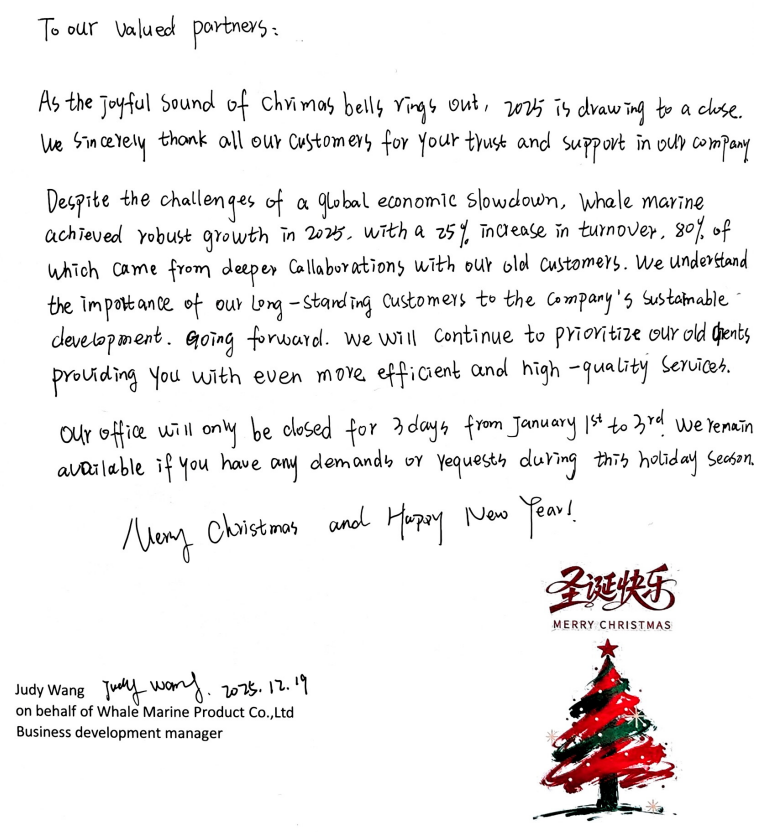 To our valued partners:
As the joyful sound of Chrimas bells rings out, 2025 is drawing to a close.
We sincerely thank all our customers for your trust and support in our company
Despite the challenges of a global economic slowdown, Whale marine
achieved robust growth in 2025, with a 25% increase in turnover, 80% of
which came from deeper collaborations with our old customers. We understand
the importance of our long-standing customers to the company's sustainable
development. Going forward. We will continue to prioritize our old clients
providing you with even more efficient and high-quality services.
Our office will only be closed for 3 days from January 1st to 3rd. We remain
available if you have any demands or requests during this holiday season.
Merry Christmas and Happy New Year!
圣诞快乐
MERRY CHRISTMAS
Judy Wang Judy Wang. 2025.12.19
on behalf of Whale Marine Product Co.,Ltd
Business development manager